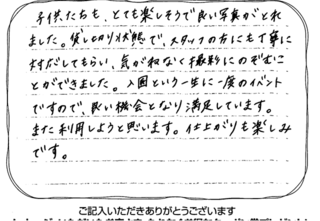 子供たちも、とても楽しそうで良い写真がとれ
ました。貸し切り状態で、スタッフの方にも丁寧に
対応してもらい、気がねなく撮影にのぞむこ
とができました。入園という一生に一度のイベント
ですので、良い機会となり満足しています。
また利用しようと思います。仕上がりも楽しみ
です。
ご記入いただきありがとうございます